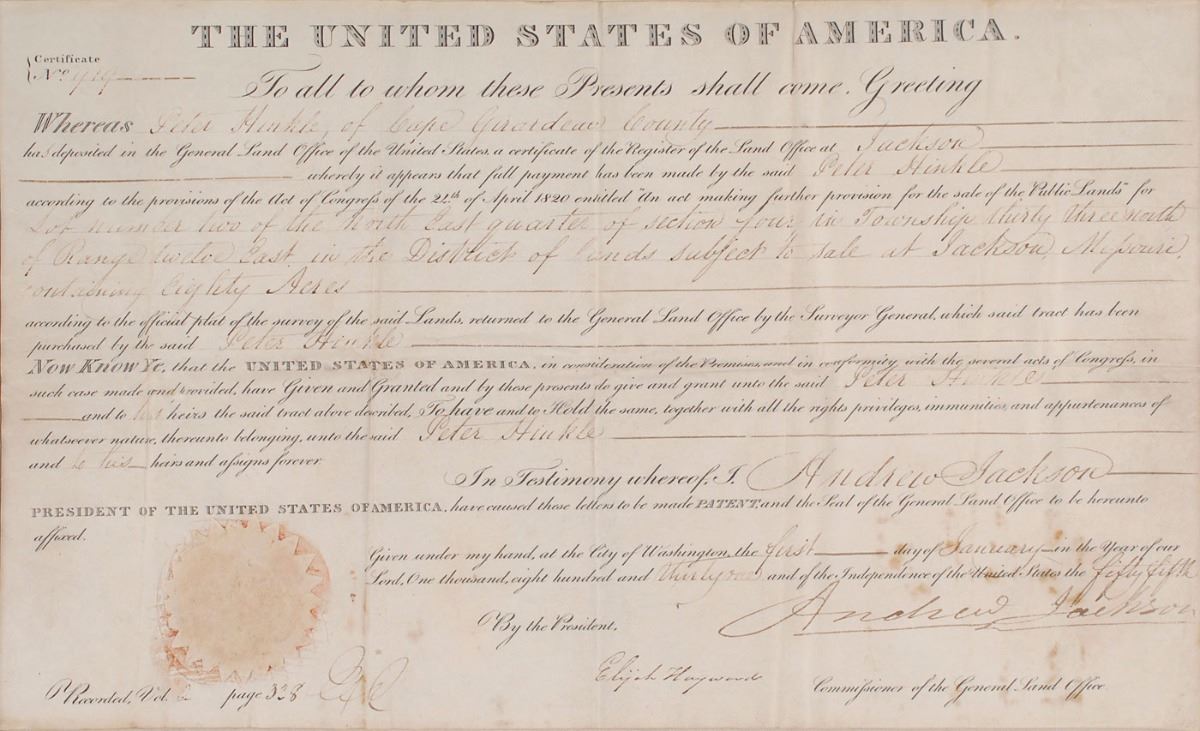 THE UNITED STATES OF AMERICA.
Certificate
No.
To all to whom these Presents shall come, Greeting
Whereas Peter Hinkle, of Cape Girardeau County
ha deposited in the General Land Office of the United States, a certificate of the Register of the Land Office at Jackson
whereby it appears that full payment has been made by the said Peter Hinkle
according to the provisions of the Act of Congress of the 24th of April 1820 entitled "An act making further provision for the sale of the Public Lands" for
Lot number two of the North East quarter of section four, in Township thirty three north
of Range twelve East, in the District of Lands subject to sale at Jackson, Missouri,
containing Eighty Acres
according to the official plat of the survey of the said Lands, returned to the General Land Office by the Surveyor General, which said tract has been
purchased by the said Peter Hinkle
Now Know Ye, that the UNITED STATES OF AMERICA, in consideration of the Premises, and in conformity with the several acts of Congress, in
such case made and provided, have Given and Granted and by these presents do give and grant unto the said Peter Hinkle,
and to his heirs the said tract above described, To have and to Hold the same, together with all the rights privileges, immunities, and appurtenances of
whatsoever nature, thereunto belonging, unto the said Peter Hinkle
and to his heirs and assigns forever
In Testimony whereof, I, Andrew Jackson
PRESIDENT OF THE UNITED STATES OF AMERICA, have caused these letters to be made PATENT, and the Seal of the General Land Office to be hereunto
affixed.
Given under my hand, at the City of Washington, the first day of January in the Year of our
Lord, One thousand, eight hundred and thirty one and of the Independence of the United States the fifty fifth
Andrew Jackson
By the President,
Elijah Hayward
Commissioner of the General Land Office
Recorded, Vol. page 328